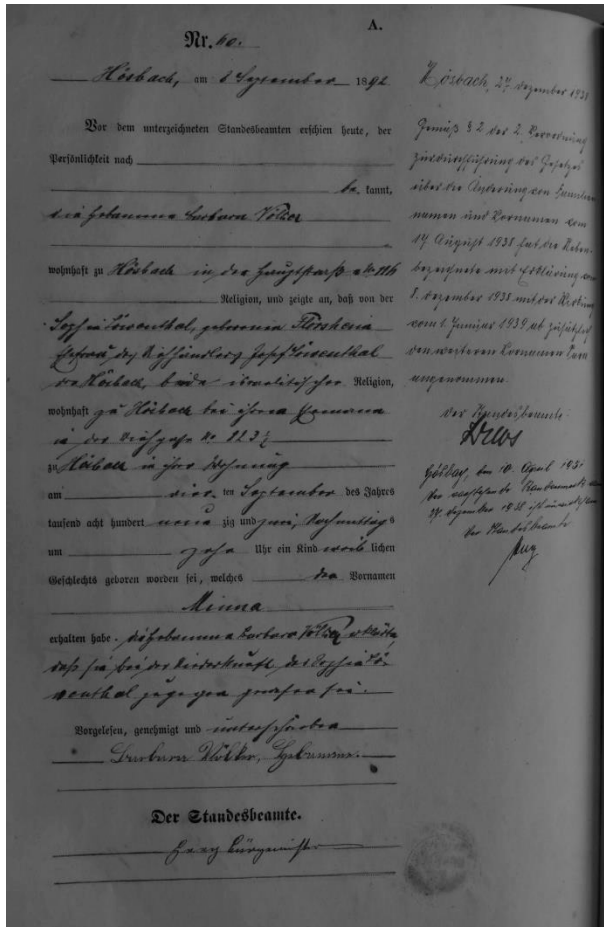 A.
Nr. 60.
Hösbach, am 6 September 1892
Vor dem unterzeichneten Standesbeamten erschien heute, der
Persönlichkeit nach
be kannt,
die Hebamme Barbara Völker
wohnhaft zu Hösbach in der Hauptstraße No 116
Religion, und zeigte an, daß von der
Sophia Löwenthal, geborenen Flörsheim
Ehefrau des Viehhändlers Josef Löwenthal
von Hösbach, beide israelitischer Religion,
wohnhaft zu Hösbach bei ihrem Ehemanne
in der No 223
zu Hösbach in ihrer Wohnung
am vier ten September des Jahres
tausend acht hundert neun zig und zwei, Nachmittags
um zehn Uhr ein Kind weib lichen
Geschlechts geboren worden sei, welches den Vornamen
Minna
erhalten habe. die Hebamme Barbara Völker erklärte,
daß sie bei der Niederkunft der Sophia Lö-
wenthal zugegen gewesen sei.
Vorgelesen, genehmigt und unterschrieben
Barbara Völker, Hebamme.
Der Standesbeamte.
Bürgermeister
Hösbach, 27. Dezember 1938
Gemäß § 2 der 2. Verordnung
zur Durchführung des Gesetzes
über die Änderung von Familien
namen und Vornamen vom
17 August 1938 hat die Neben-
bezeichnete mit Erklärung vom
8. Dezember 1938 mit der Wirkung
vom 1. Januar 1939 ab zusätzlich
den weiteren Vornamen Sara
angenommen.
Der Standesbeamte:
Hösbach, den 10. April 1951
Der vorstehende Randvermerk vom
27. Dezember 1938 ist
Der Standesbeamte